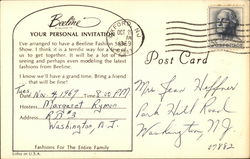 Beeline
YOUR PERSONAL INVITATION
I've arranged to have a Beeline Fashion
Show. I think it is a terrific way for a
us to get together. It will be a lot of fun
seeing and perhaps even modeling the latest
fashions from Beeline.
I know we'll have a grand time. Bring a friend
- that will be fine!
Date Nov. 4, 1969 Time 8:00 PM
Hostess Margaret Rymon
Address R.D. #3
Washington, N.J.
Fashions For The Entire Family
Litho in U.S.A.
OCT
1969
Post Card
Mrs Jean Heffner
Park Hill Road
Washington, NJ.
07882